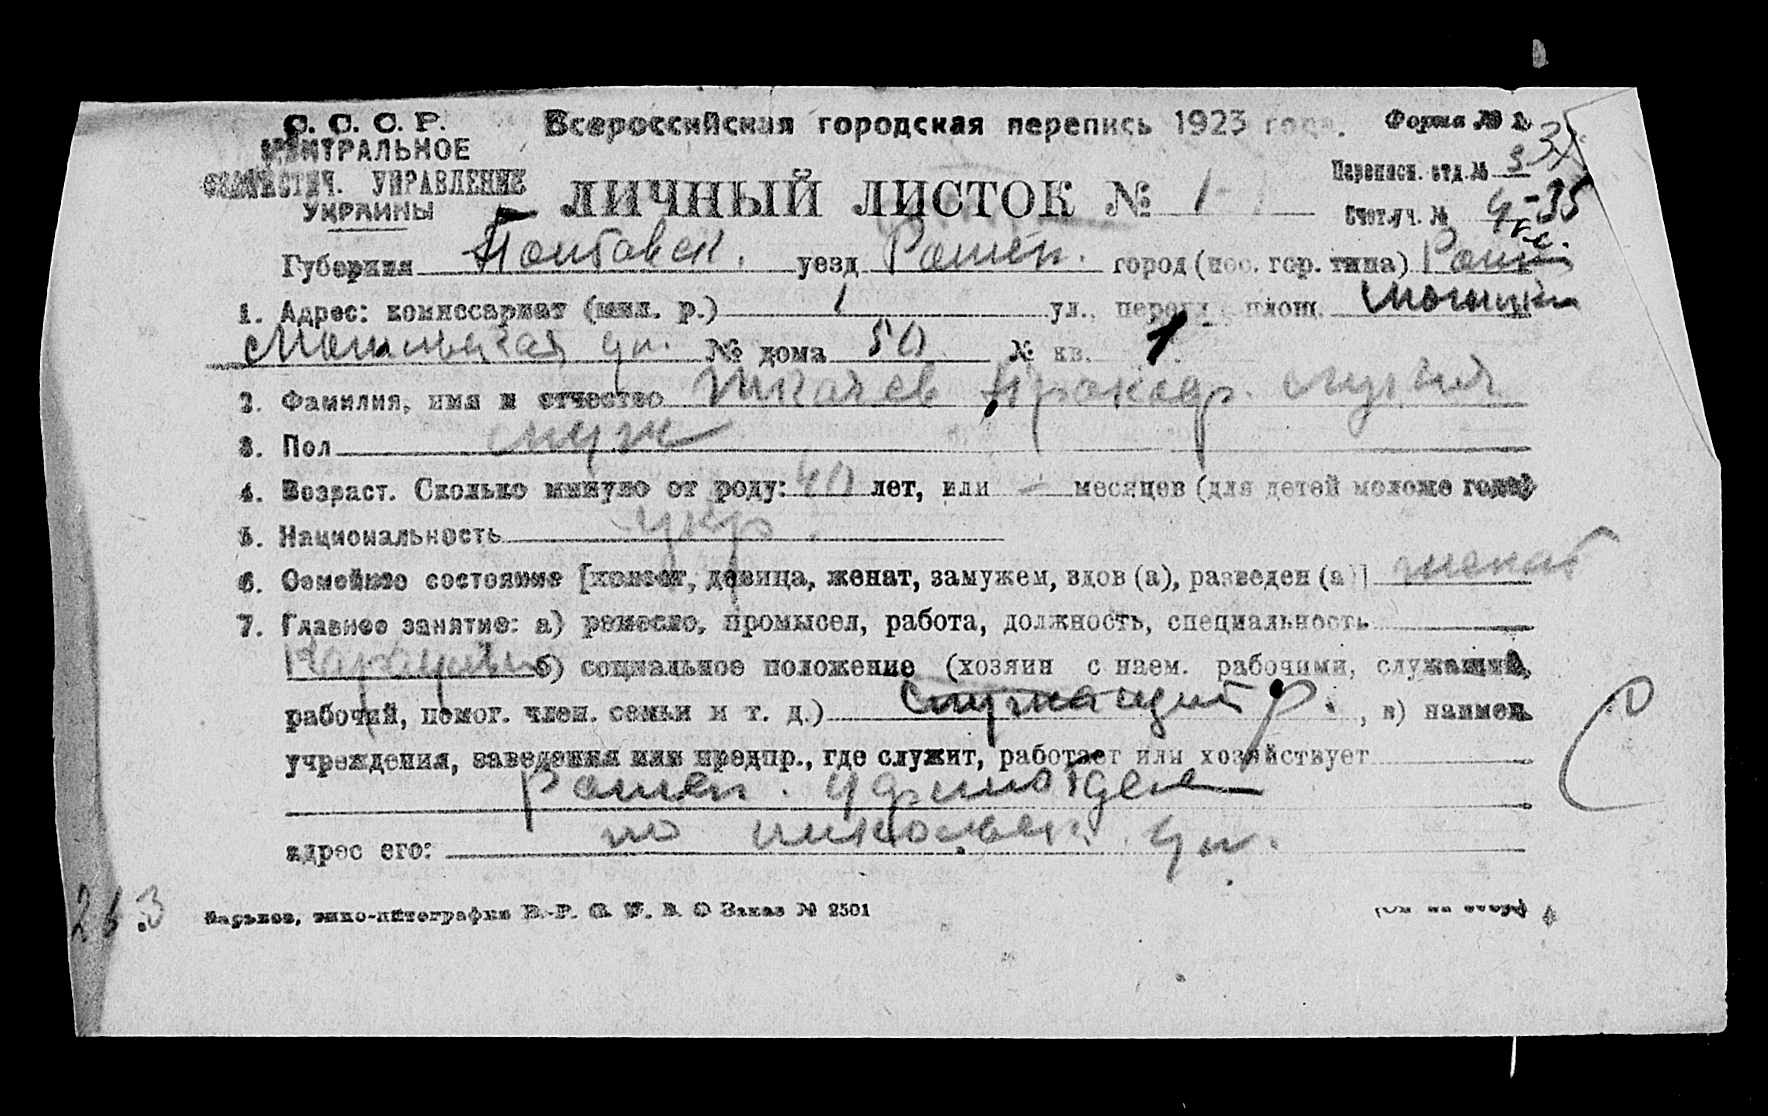 С. С. С. Р.
ЦЕНТРАЛЬНОЕ
СТАТИСТИЧ. УПРАВЛЕНИЕ
УКРАИНЫ
Всероссийская городская перепись 1923 года.
Форма № 2
ЛИЧНЫЙ ЛИСТОК № 1
Переписн. отд. № 3
Счет. уч. № 4-35
Губерния Полтавск. уезд Ромен. город (пос. гор. типа) Ромен
1. Адрес: комиссариат (мил. р.) 1 ул., переул., площ.
ул. № дома 50 № кв. 1
2. Фамилия, имя и отчество Ткачев
3. Пол муж
4. Возраст. Сколько минуло от роду: 40 лет, или - месяцев (для детей моложе года)
5. Национальность укр.
6. Семейное состояние [холост, девица, женат, замужем, вдов (а), разведен (а)] женат
7. Главное занятие: а) ремесло, промысел, работа, должность, специальность
б) социальное положение (хозяин с наем. рабочими, служащий,
рабочий, помог. член. семьи и т. д.) служащий р. , в) наимен.
учреждения, заведения или предпр., где служит, работает или хозяйствует
Ромен.
адрес его: по ул.
263
Харьков, типо-литография В.-Р. С. У. В. О Заказ № 2501